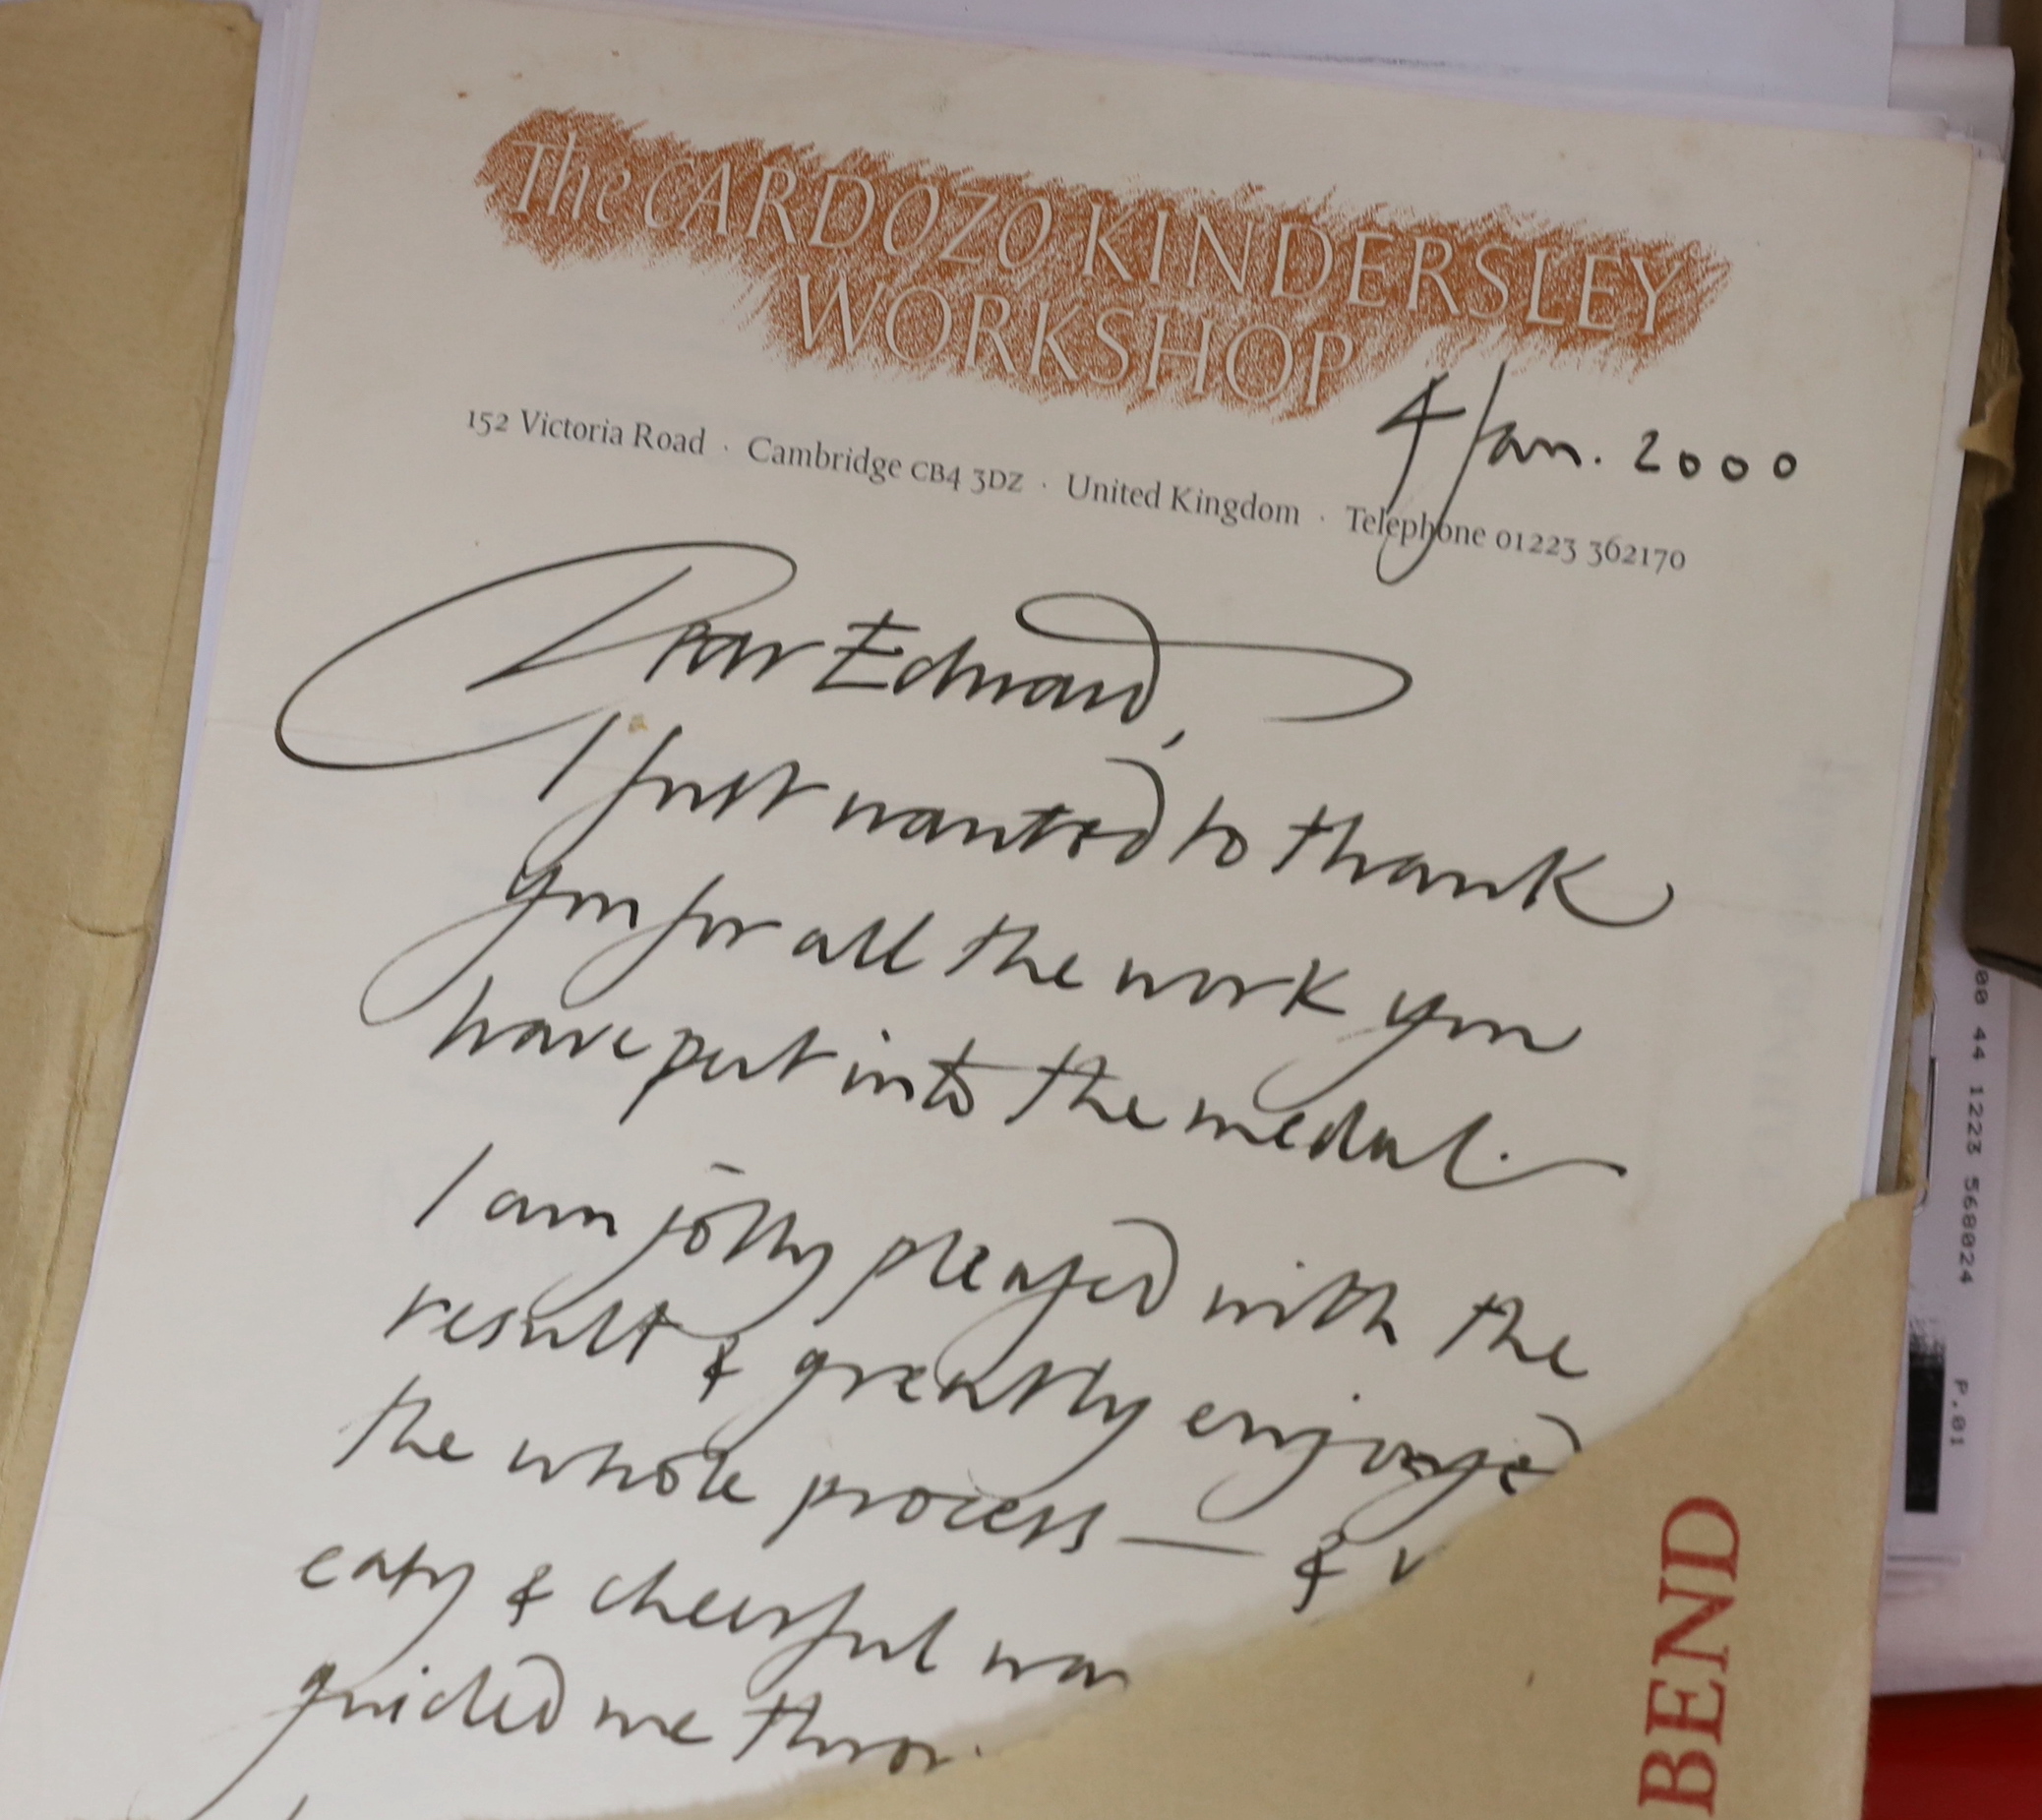 The CARDOZO KINDERSLEY
WORKSHOP
4 Jan. 2000
152 Victoria Road · Cambridge CB4 3DZ · United Kingdom · Telephone 01223 362170
Dear Edward,
I just wanted to thank
you for all the work you
have put into the medal.
I am jolly pleased with the
result & greatly enjoyed
the whole process — &
easy & cheerful
guided me
BEND
00 44 1223 568024
P.01